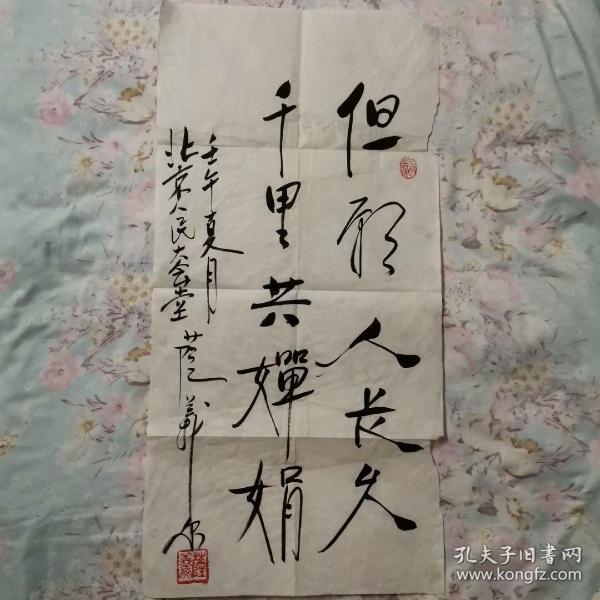 但愿人长久
千里共婵娟
壬午夏月
北京人民大会堂
孔夫子旧书网
www.kongfz.com